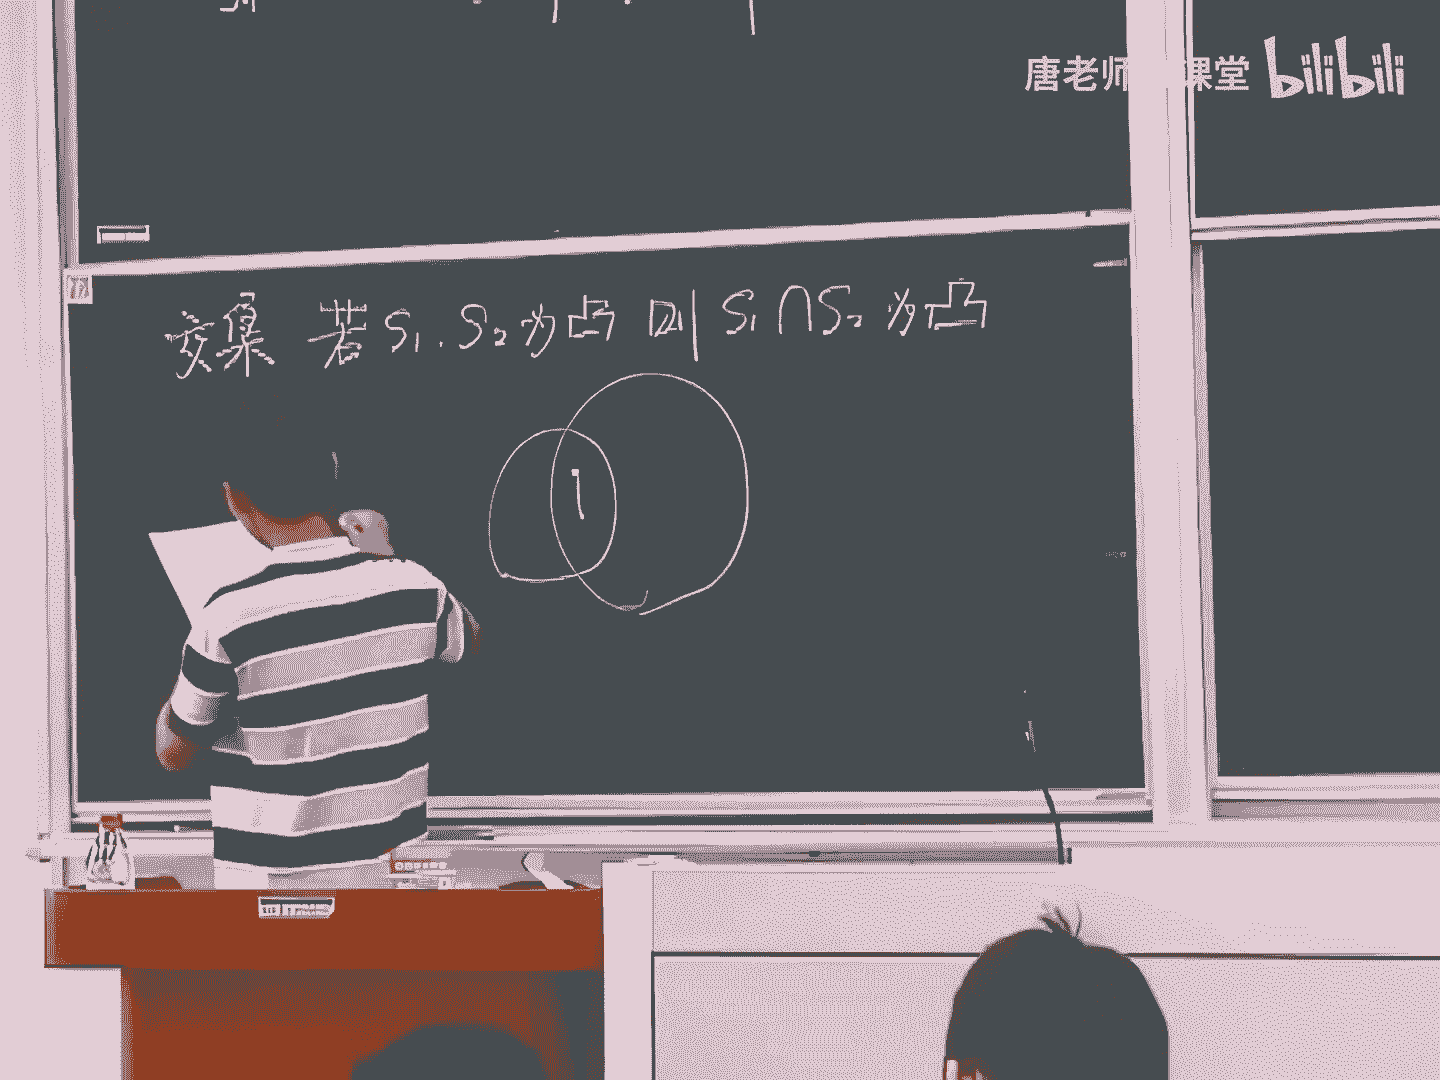 唐老师 课堂 bilibili
交集 若 S₁, S₂ 为凸 则 S₁ ∩ S₂ 为凸